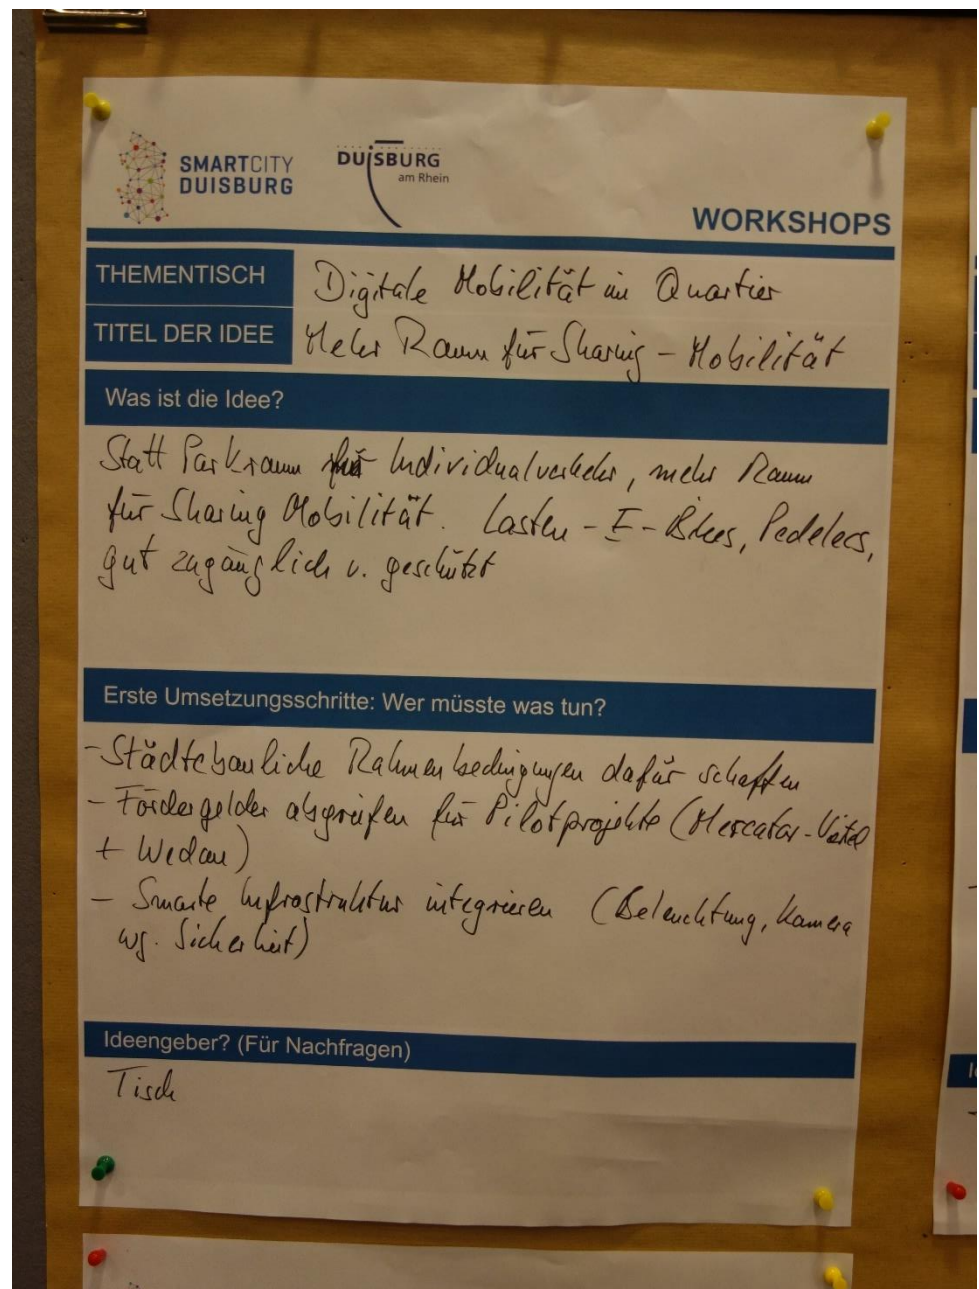 SMARTCITY
DUISBURG
DUISBURG
am Rhein
WORKSHOPS
THEMENTISCH Digitale Mobilität im Quartier
TITEL DER IDEE Mehr Raum für Sharing - Mobilität
Was ist die Idee?
Statt Parkraum für Individualverkehr, mehr Raum
für Sharing Mobilität. Lasten - E - Bikes, Pedelecs,
gut zugänglich u. geschützt
Erste Umsetzungsschritte: Wer müsste was tun?
- Städtebauliche Rahmenbedingungen dafür schaffen
- Fördergelder abgreifen für Pilotprojekte (Mercator-Viertel
+ Wedau)
- Smarte Infrastruktur integrieren (Beleuchtung, Kamera
wg. Sicherheit)
Ideengeber? (Für Nachfragen)
Tisch